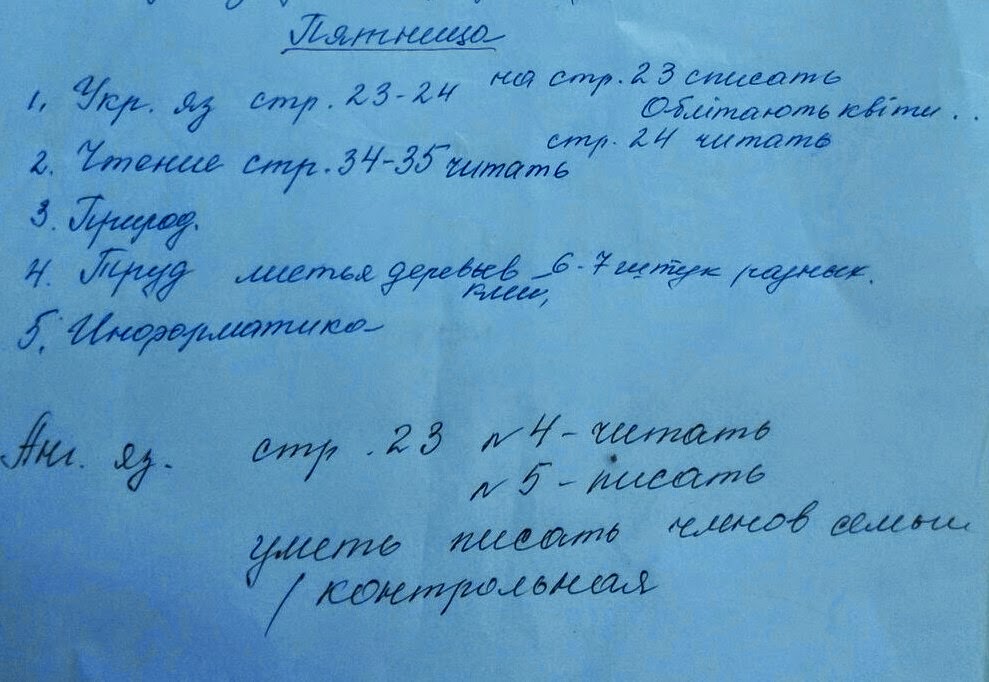 Пятница
1. Укр. яз стр. 23-24 на стр. 23 списать
Облітають квіти ..
стр. 24 читать
2. Чтение стр. 34-35 читать
3. Природ.
4. Труд листья деревьев 6-7 штук разных.
клей,
5. Информатика
Анг. яз. стр. 23 №4 - читать
№5 - писать
уметь писать членов семьи
/ контрольная